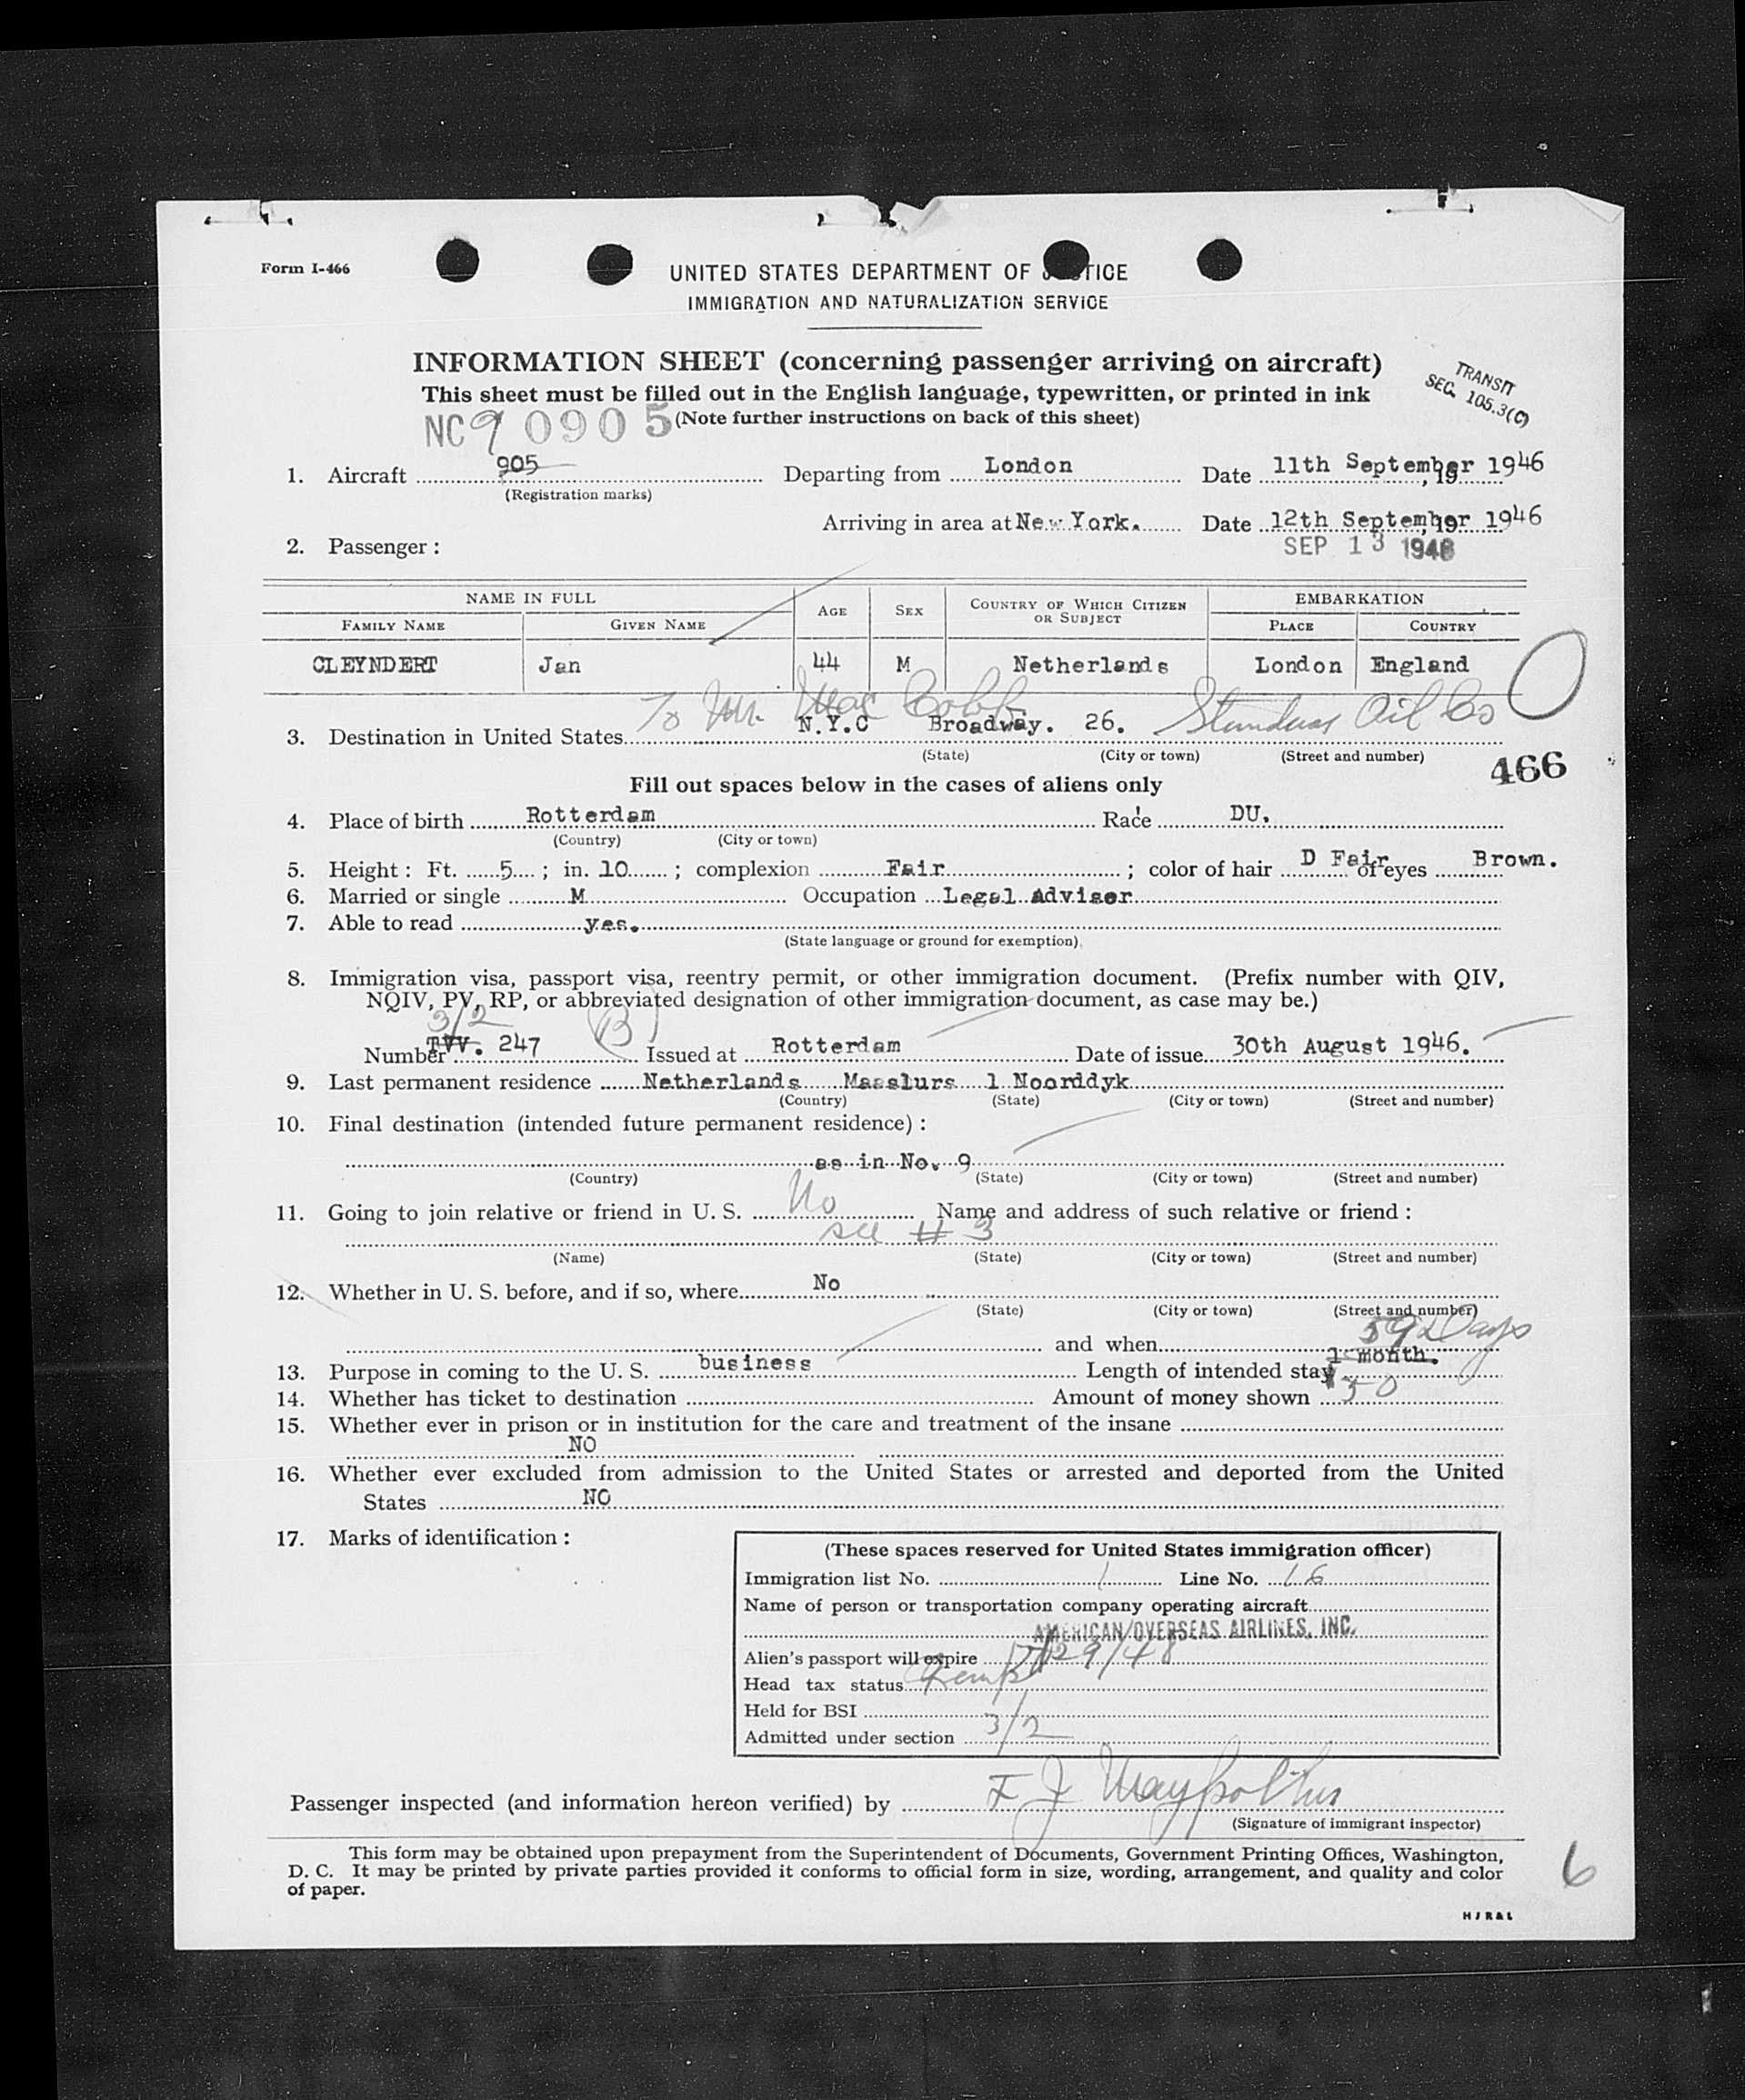 Form I-466
UNITED STATES DEPARTMENT OF JUSTICE
IMMIGRATION AND NATURALIZATION SERVICE
INFORMATION SHEET (concerning passenger arriving on aircraft)
This sheet must be filled out in the English language, typewritten, or printed in ink
TRANSIT
SEC. 105.3(C)
NC 90905 (Note further instructions on back of this sheet)
1. Aircraft 905 Departing from London Date 11th September 1946, 19
(Registration marks)
Arriving in area at New York. Date 12th September 1946, 19
2. Passenger: SEP 13 1946
NAME IN FULL AGE SEX COUNTRY OF WHICH CITIZEN OR SUBJECT EMBARKATION
FAMILY NAME GIVEN NAME PLACE COUNTRY
CLEYNDERT Jan 44 M Netherlands London England
To Mr. Mac Cobb Oil Co
3. Destination in United States N.Y.C Broadway. 26.
(State) (City or town) (Street and number)
466
Fill out spaces below in the cases of aliens only
4. Place of birth Rotterdam Race DU.
(Country) (City or town)
5. Height: Ft. 5; in. 10; complexion Fair; color of hair D Fair of eyes Brown.
6. Married or single M Occupation Legal Adviser
7. Able to read yes.
(State language or ground for exemption)
8. Immigration visa, passport visa, reentry permit, or other immigration document. (Prefix number with QIV,
NQIV, PV, RP, or abbreviated designation of other immigration document, as case may be.)
3/2 (B)
Number 247 Issued at Rotterdam Date of issue 30th August 1946.
9. Last permanent residence Netherlands Maaslurs 1 Noorddyk
(Country) (State) (City or town) (Street and number)
10. Final destination (intended future permanent residence):
as in No. 9
(Country) (State) (City or town) (Street and number)
11. Going to join relative or friend in U. S. No Name and address of such relative or friend:
see # 3
(Name) (State) (City or town) (Street and number)
12. Whether in U. S. before, and if so, where No
(State) (City or town) (Street and number)
59 Days
and when
13. Purpose in coming to the U. S. business Length of intended stay 1 month.
14. Whether has ticket to destination Amount of money shown $50
15. Whether ever in prison or in institution for the care and treatment of the insane
NO
16. Whether ever excluded from admission to the United States or arrested and deported from the United
States NO
17. Marks of identification:
(These spaces reserved for United States immigration officer)
Immigration list No. 1 Line No. 16
Name of person or transportation company operating aircraft
AMERICAN OVERSEAS AIRLINES, INC.
Alien's passport will expire /29/48
Head tax status
Held for BSI
Admitted under section 3/2
Passenger inspected (and information hereon verified) by
(Signature of immigrant inspector)
This form may be obtained upon prepayment from the Superintendent of Documents, Government Printing Offices, Washington,
D. C. It may be printed by private parties provided it conforms to official form in size, wording, arrangement, and quality and color
of paper.
6
HJR&L